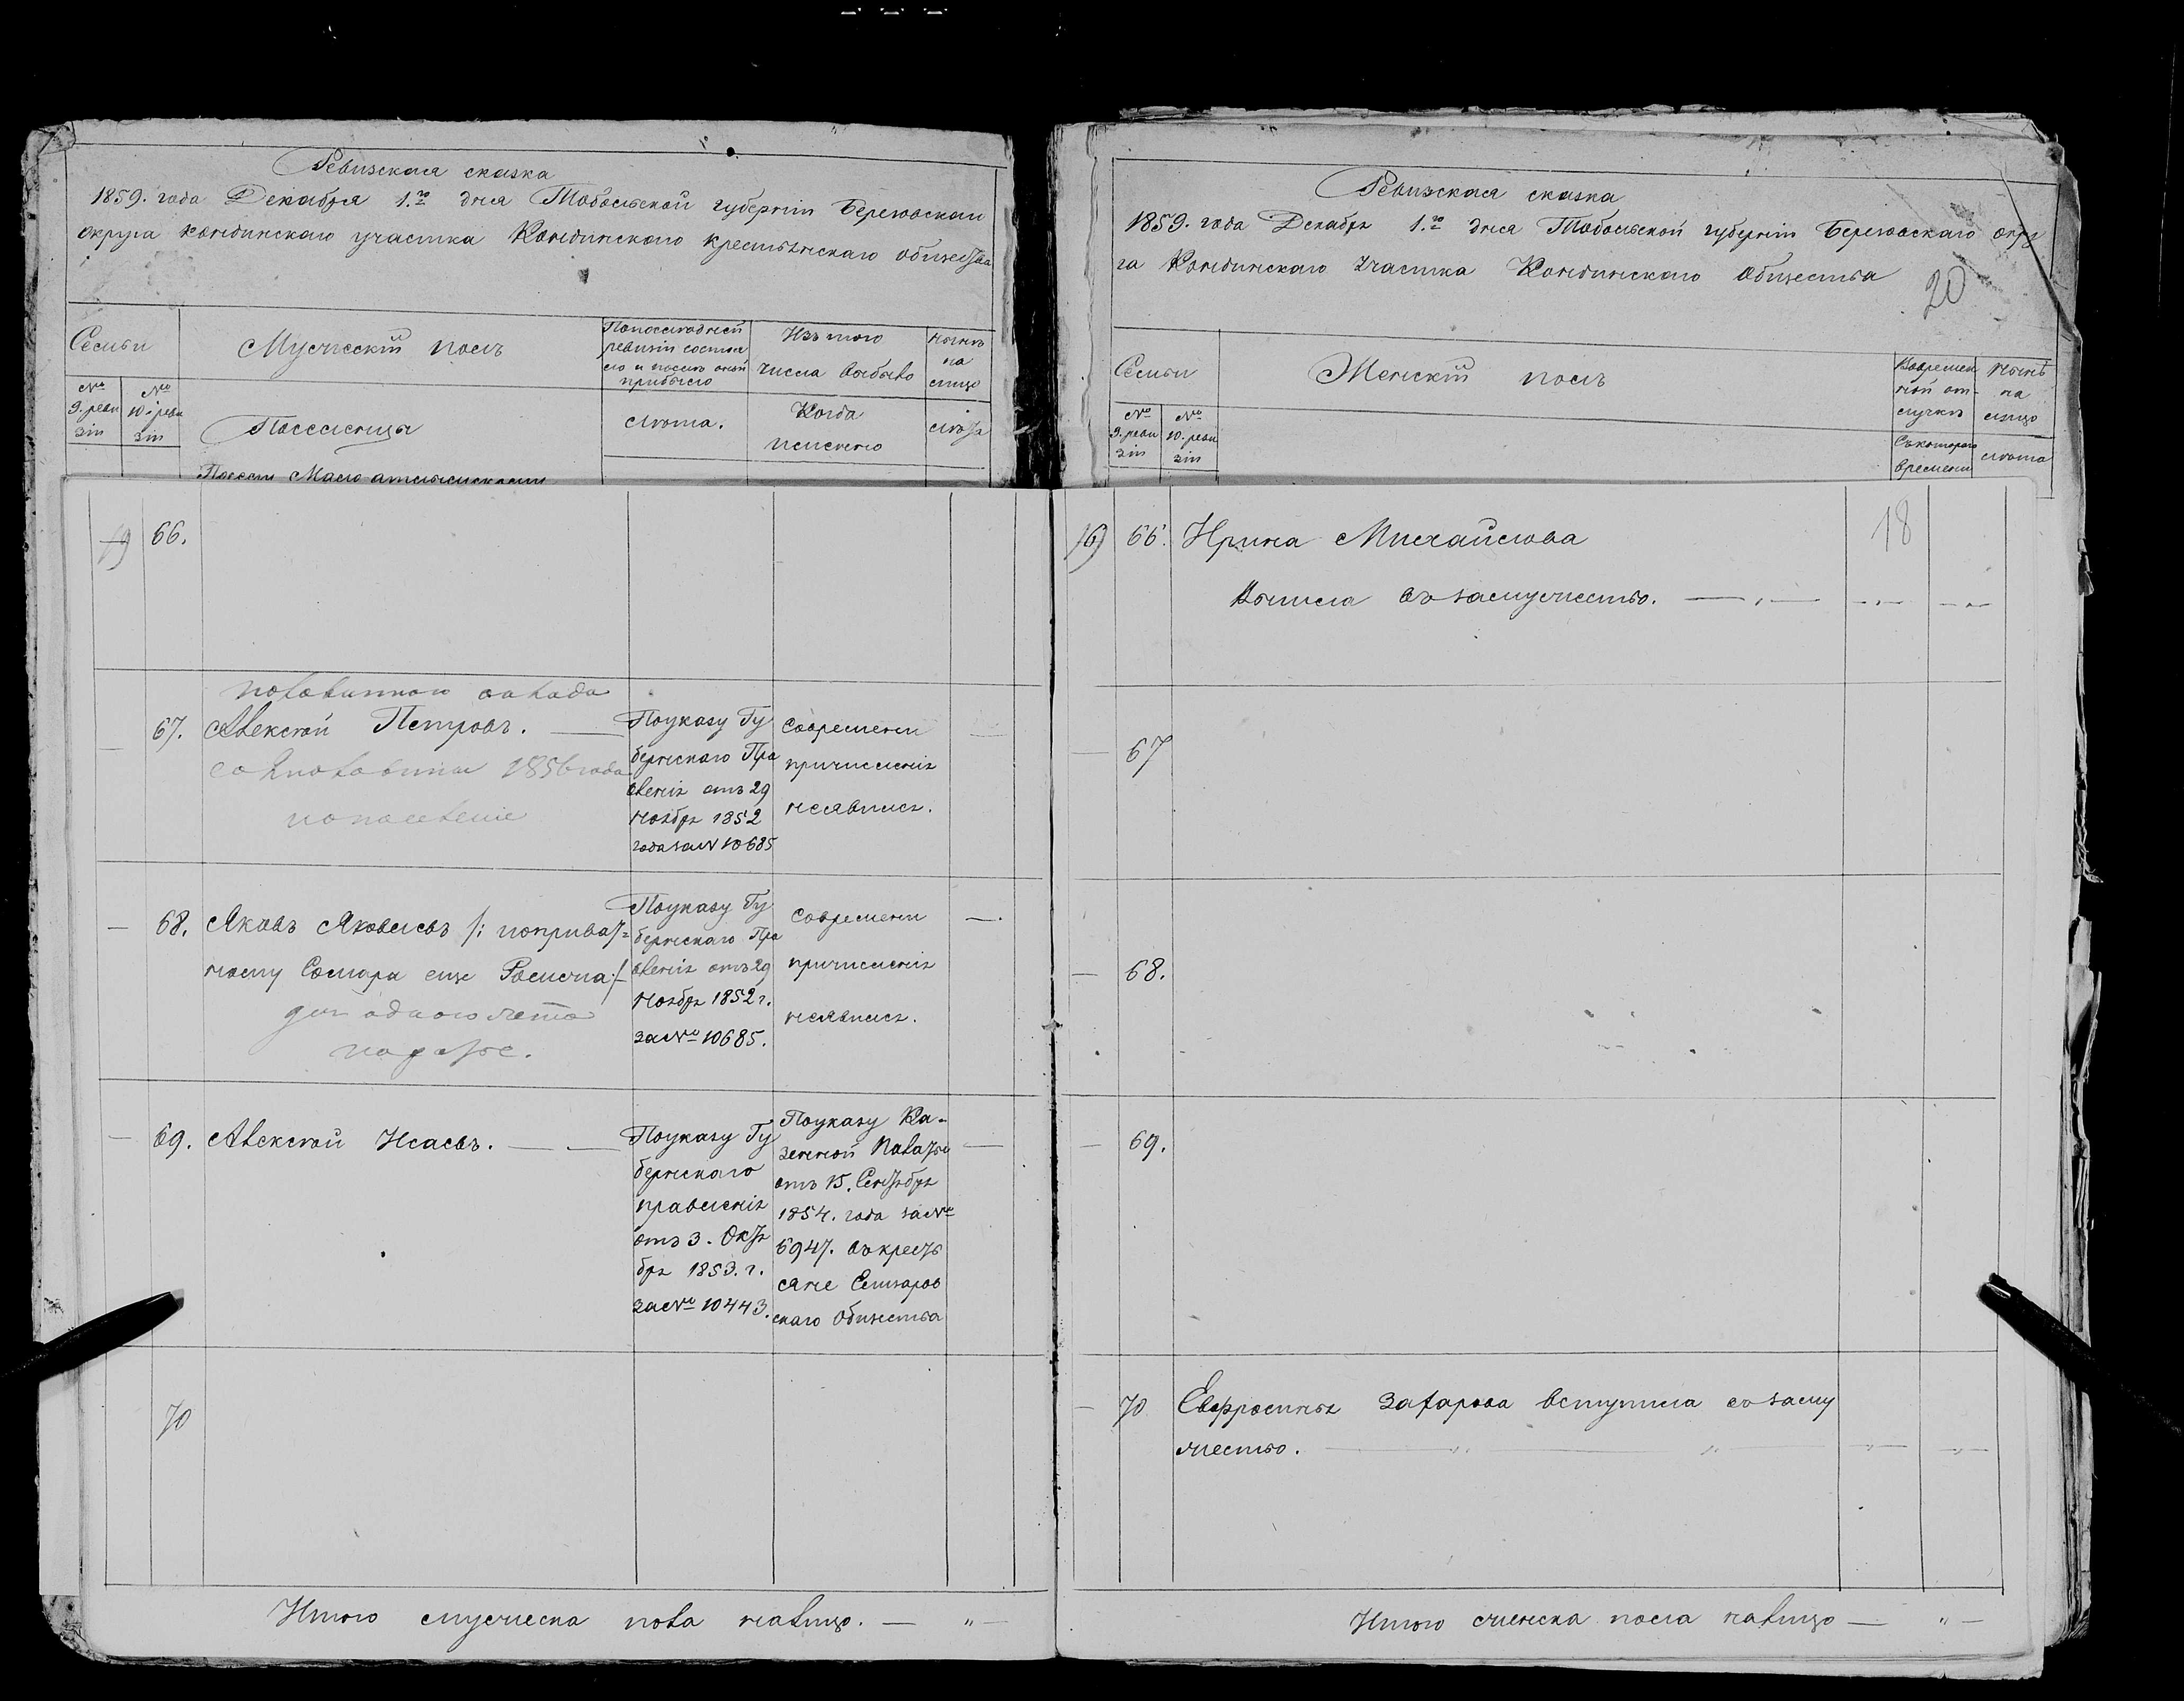 Ревизская сказка
1859. года Декабря 1.го дня Тобольской губерніи Березовскаго
округа Кондинскаго участка Кондинскаго крестьянскаго общества
Семьи
Мужескій полъ
По последней
ревизіи состоя
ло и после оной
прибыло
Изъ того
числа выбыло
ныне
на
лицо
№
9. реви
зіи
№
10. реви
зіи
Поселенцы
лета.
Когда
именно
лета
66.
половиннаго оклада
67. Алексей Петровъ.
со 2 половины 1856 года
По указу Гу
бернскаго Пра
вленія отъ 29
ноября 1852
года за № 10685
Со времени
причисленія
неявился.
— 68. Яковъ Яковлевъ /: по приват=
ному
еще
:/
По указу Гу
бернскаго Пра
вленія отъ 29
ноября 1852 г.
за № 10685.
Со времени
причисленія
неявился.
—.
— 69. Алексей Исаевъ. — —
По указу Гу
бернскаго
правленія
отъ 3. Октя
бря 1853. г.
за № 10443.
По указу Ка-
зенной Палаты
отъ 15. Сентября
1854. года за №
6947. въ кресть
яне
скаго Общества
—
70
Итого мужеска пола налицо. — „ —
Ревизская сказка
1859. года Декабря 1.го дня Тобольской губерніи Березовскаго окру
га Кондинскаго Участка Кондинскаго Общества
20
Семьи
Женскій полъ
Во времен
ной от-
лучке
ныне
на
лицо
№
9. реви
зіи
№
10. реви
зіи
Съ котораго
времени
лета
66. Ирина Михайлова
18
Вышла въ замужество. — „ —
— 67
— 68.
— 69.
— 70 Евфросинья Захарова вступила въ заму
жество.
Итого женска пола налицо — „ —